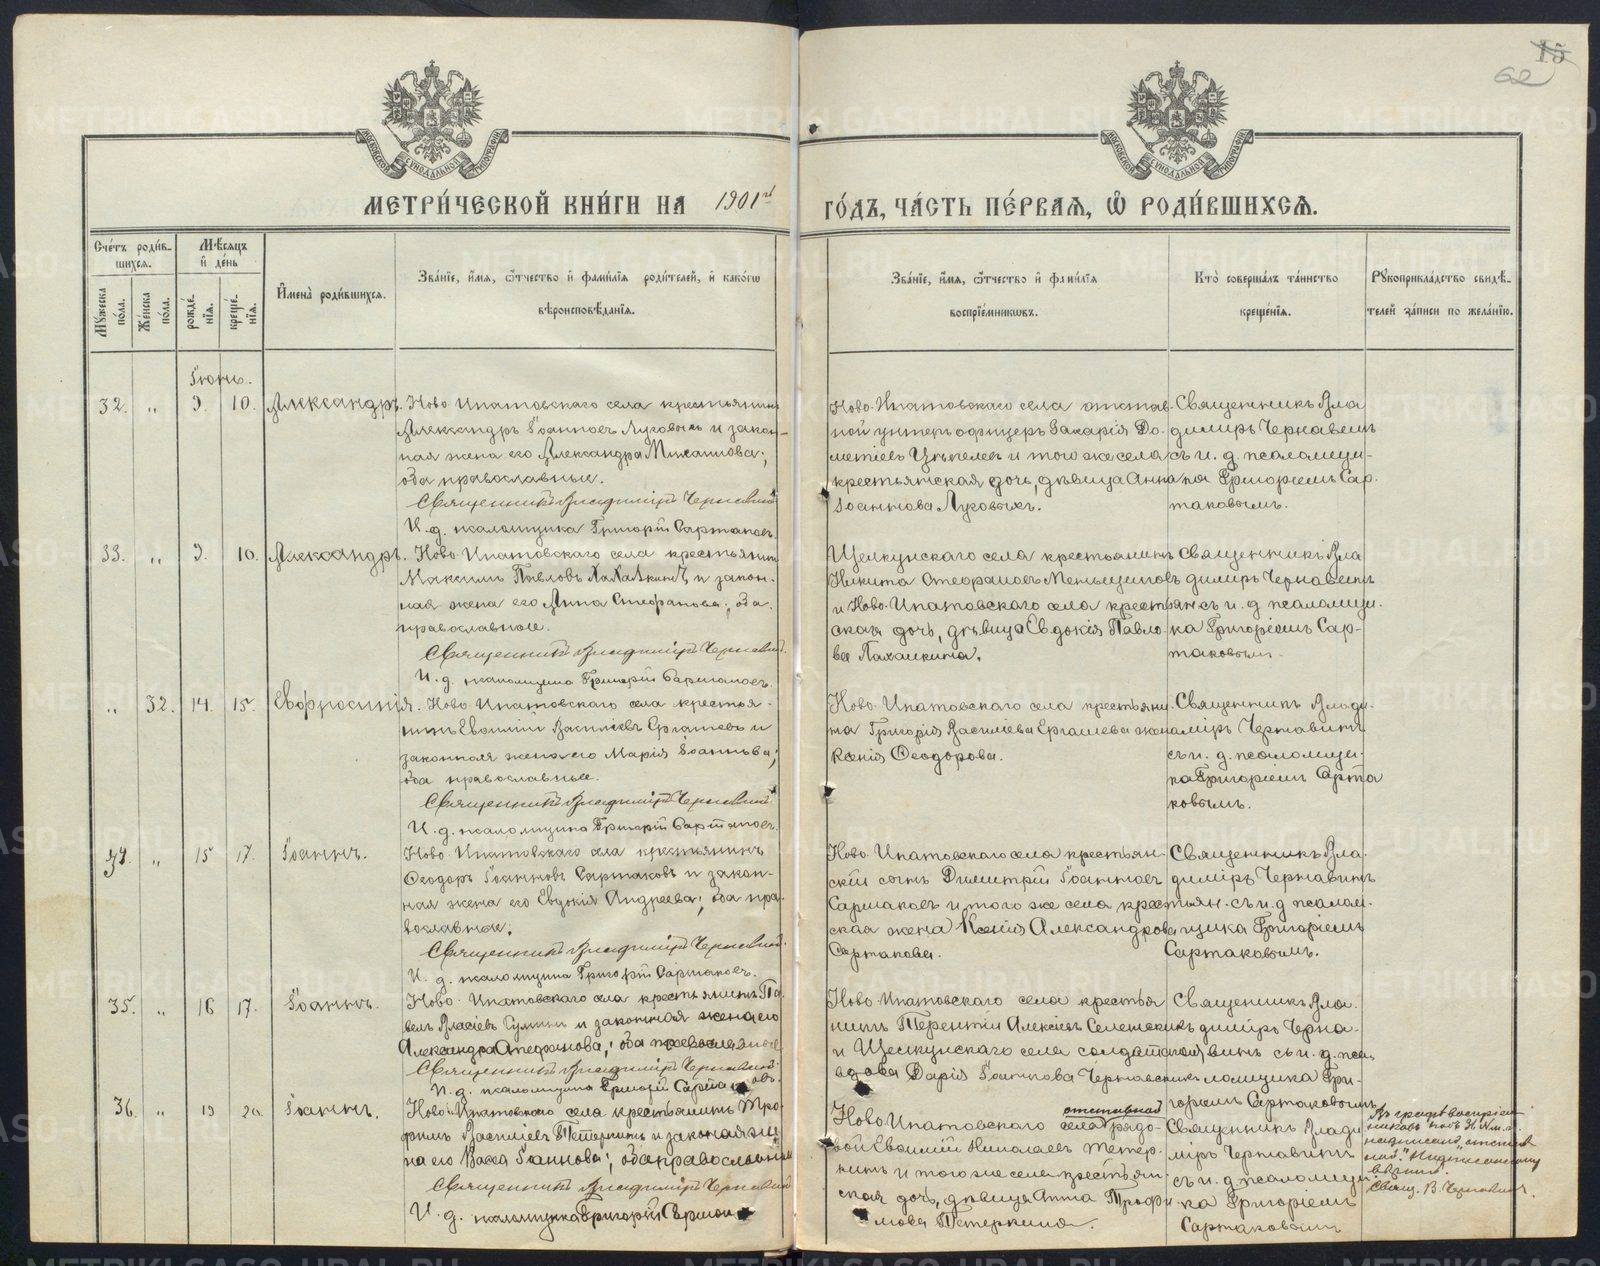 15
62
МОСКОВСКОЙ СѴНОДАЛЬНОЙ ТИПОГРАФІИ
МОСКОВСКОЙ СѴНОДАЛЬНОЙ ТИПОГРАФІИ
МЕТРИ́ЧЕСКОЙ КНИ́ГИ НА 1901й
ГО́ДЪ, ЧА́СТЬ ПЕ́РВАЯ, Ѡ РОДИ́ВШИХСЯ.
Сче́тъ роди́в-
шихся.
Мꙋ́жеска по́ла.
Же́нска по́ла.
Мѣ́сяцъ
и де́нь
рожде́нїя.
креще́нїя.
И҆мена̀ роди́вшихся.
Зва́нїе, и҆́мя, ѻ҆́тчество и҆ фами́лїя роди́телей, и҆ како́гѡ
вѣроисповѣ́данїя.
Зва́нїе, и҆́мя, ѻ҆́тчество и҆ фами́лїя
воспрїе́мникѡвъ.
Кто̀ соверша́лъ та́инство
креще́нїя.
Рꙋкоприкла́дство свидѣ́-
телей за́писи по жела́нїю.
Іюнь.
32. „ 9. 10. Александръ.
Ново-Ипатовскаго села крестьянинъ
Александръ Іоанновъ Луговыхъ и закон-
ная жена его Александра Михаилова;
оба православные.
Священникъ Владиміръ Чернавинъ
И. д. псаломщика Григорій Сартаковъ.
Ново-Ипатовскаго села отстав-
ной унтеръ офицеръ Захарія До-
метіевъ и того же села
крестьянская дочь, дѣвица Анна
Іоаннова Луговыхъ.
Священникъ Вла
димиръ Чернавинъ
съ и. д. псаломщи-
ка Григоріемъ Сар-
таковымъ.
33. „ 9. 10. Александръ.
Ново-Ипатовскаго села крестьянинъ
Максимъ Павловъ Пахалкинъ и закон-
ная жена его Анна Стефанова; оба
православные.
Священникъ Владиміръ Чернавинъ.
И. д. псаломщика Григорій Сартаковъ.
Щелкунскаго села крестьянинъ
Никита Стефановъ Меньщиковъ
и Ново-Ипатовскаго села крестьян
ская дочь, дѣвица Евдокія Павло-
ва Пахалкина.
Священникъ Вла
димиръ Чернавинъ
съ и. д. псаломщи-
ка Григоріемъ Сар-
таковымъ.
„ 32. 14. 15. Евфросинія.
Ново-Ипатовскаго села крестья-
нинъ Евѳимій Василіевъ Ергашевъ и
законная жена его Марія Іоаннова;
оба православные.
Священникъ Владиміръ Чернавинъ
И. д. псаломщика Григорій Сартаковъ.
Ново-Ипатовскаго села крестьяни-
на Григорія Василіева Ергашева жена
Ксенія Ѳеодорова.
Священникъ Влади-
миръ Чернавинъ
съ и. д. псаломщи-
ка Григоріемъ Сарта
ковымъ.
34. „ 15 17. Іоаннъ.
Ново-Ипатовскаго села крестьянинъ
Ѳеодоръ Іоанновъ Сартаковъ и закон-
ная жена его Евдокія Андреева; оба пра-
вославные.
Священникъ Владиміръ Чернавинъ.
И. д. псаломщика Григорій Сартаковъ.
Ново-Ипатовскаго села крестьян-
скій сынъ Димитрій Іоанновъ
Сартаковъ и того же села крестьян-
ская жена Ксенія Александрова
Сартакова.
Священникъ Вла-
димиръ Чернавинъ
съ и. д. псалом-
щика Григоріемъ
Сартаковымъ.
35. „ 16 17. Іоаннъ.
Ново-Ипатовскаго села крестьянинъ Па-
велъ Власіевъ и законная жена его
Александра Стефанова; оба православные
Священникъ Владиміръ Чернавинъ.
И. д. псаломщика Григорій Сартаковъ.
Ново-Ипатовскаго села крестья
нинъ Терентій Алексіевъ
и Щелкунскаго села солдатская
вдова Дарія Іоаннова
Священникъ Вла-
димиръ Черна-
винъ съ и. д. пса-
ломщика Гри-
горіемъ Сартаковымъ.
36. „ 19 20. Іоаннъ.
Ново-Ипатовскаго села крестьянинъ Тро-
фимъ Василіевъ Петеркинъ и законная же
на его Васса Іоаннова; оба православные
Священникъ Владиміръ Чернавинъ
И. д. псаломщика Григорій Сартаковъ
отставной
Ново-Ипатовскаго села рядо-
вой Евѳимій Николаевъ Петер-
кинъ и того же села крестьян-
ская дочь, дѣвица Анна Трофи
мова Петеркина.
Священникъ Влади
міръ Чернавинъ
съ и. д. псаломщи-
ка Григоріемъ
Сартаковымъ
Въ графѣ воспріем-
никовъ
надписано „отстав
ной."
вѣрить.
Свящ. В. Чернавинъ.
METRIKI.GASO-URAL.RU